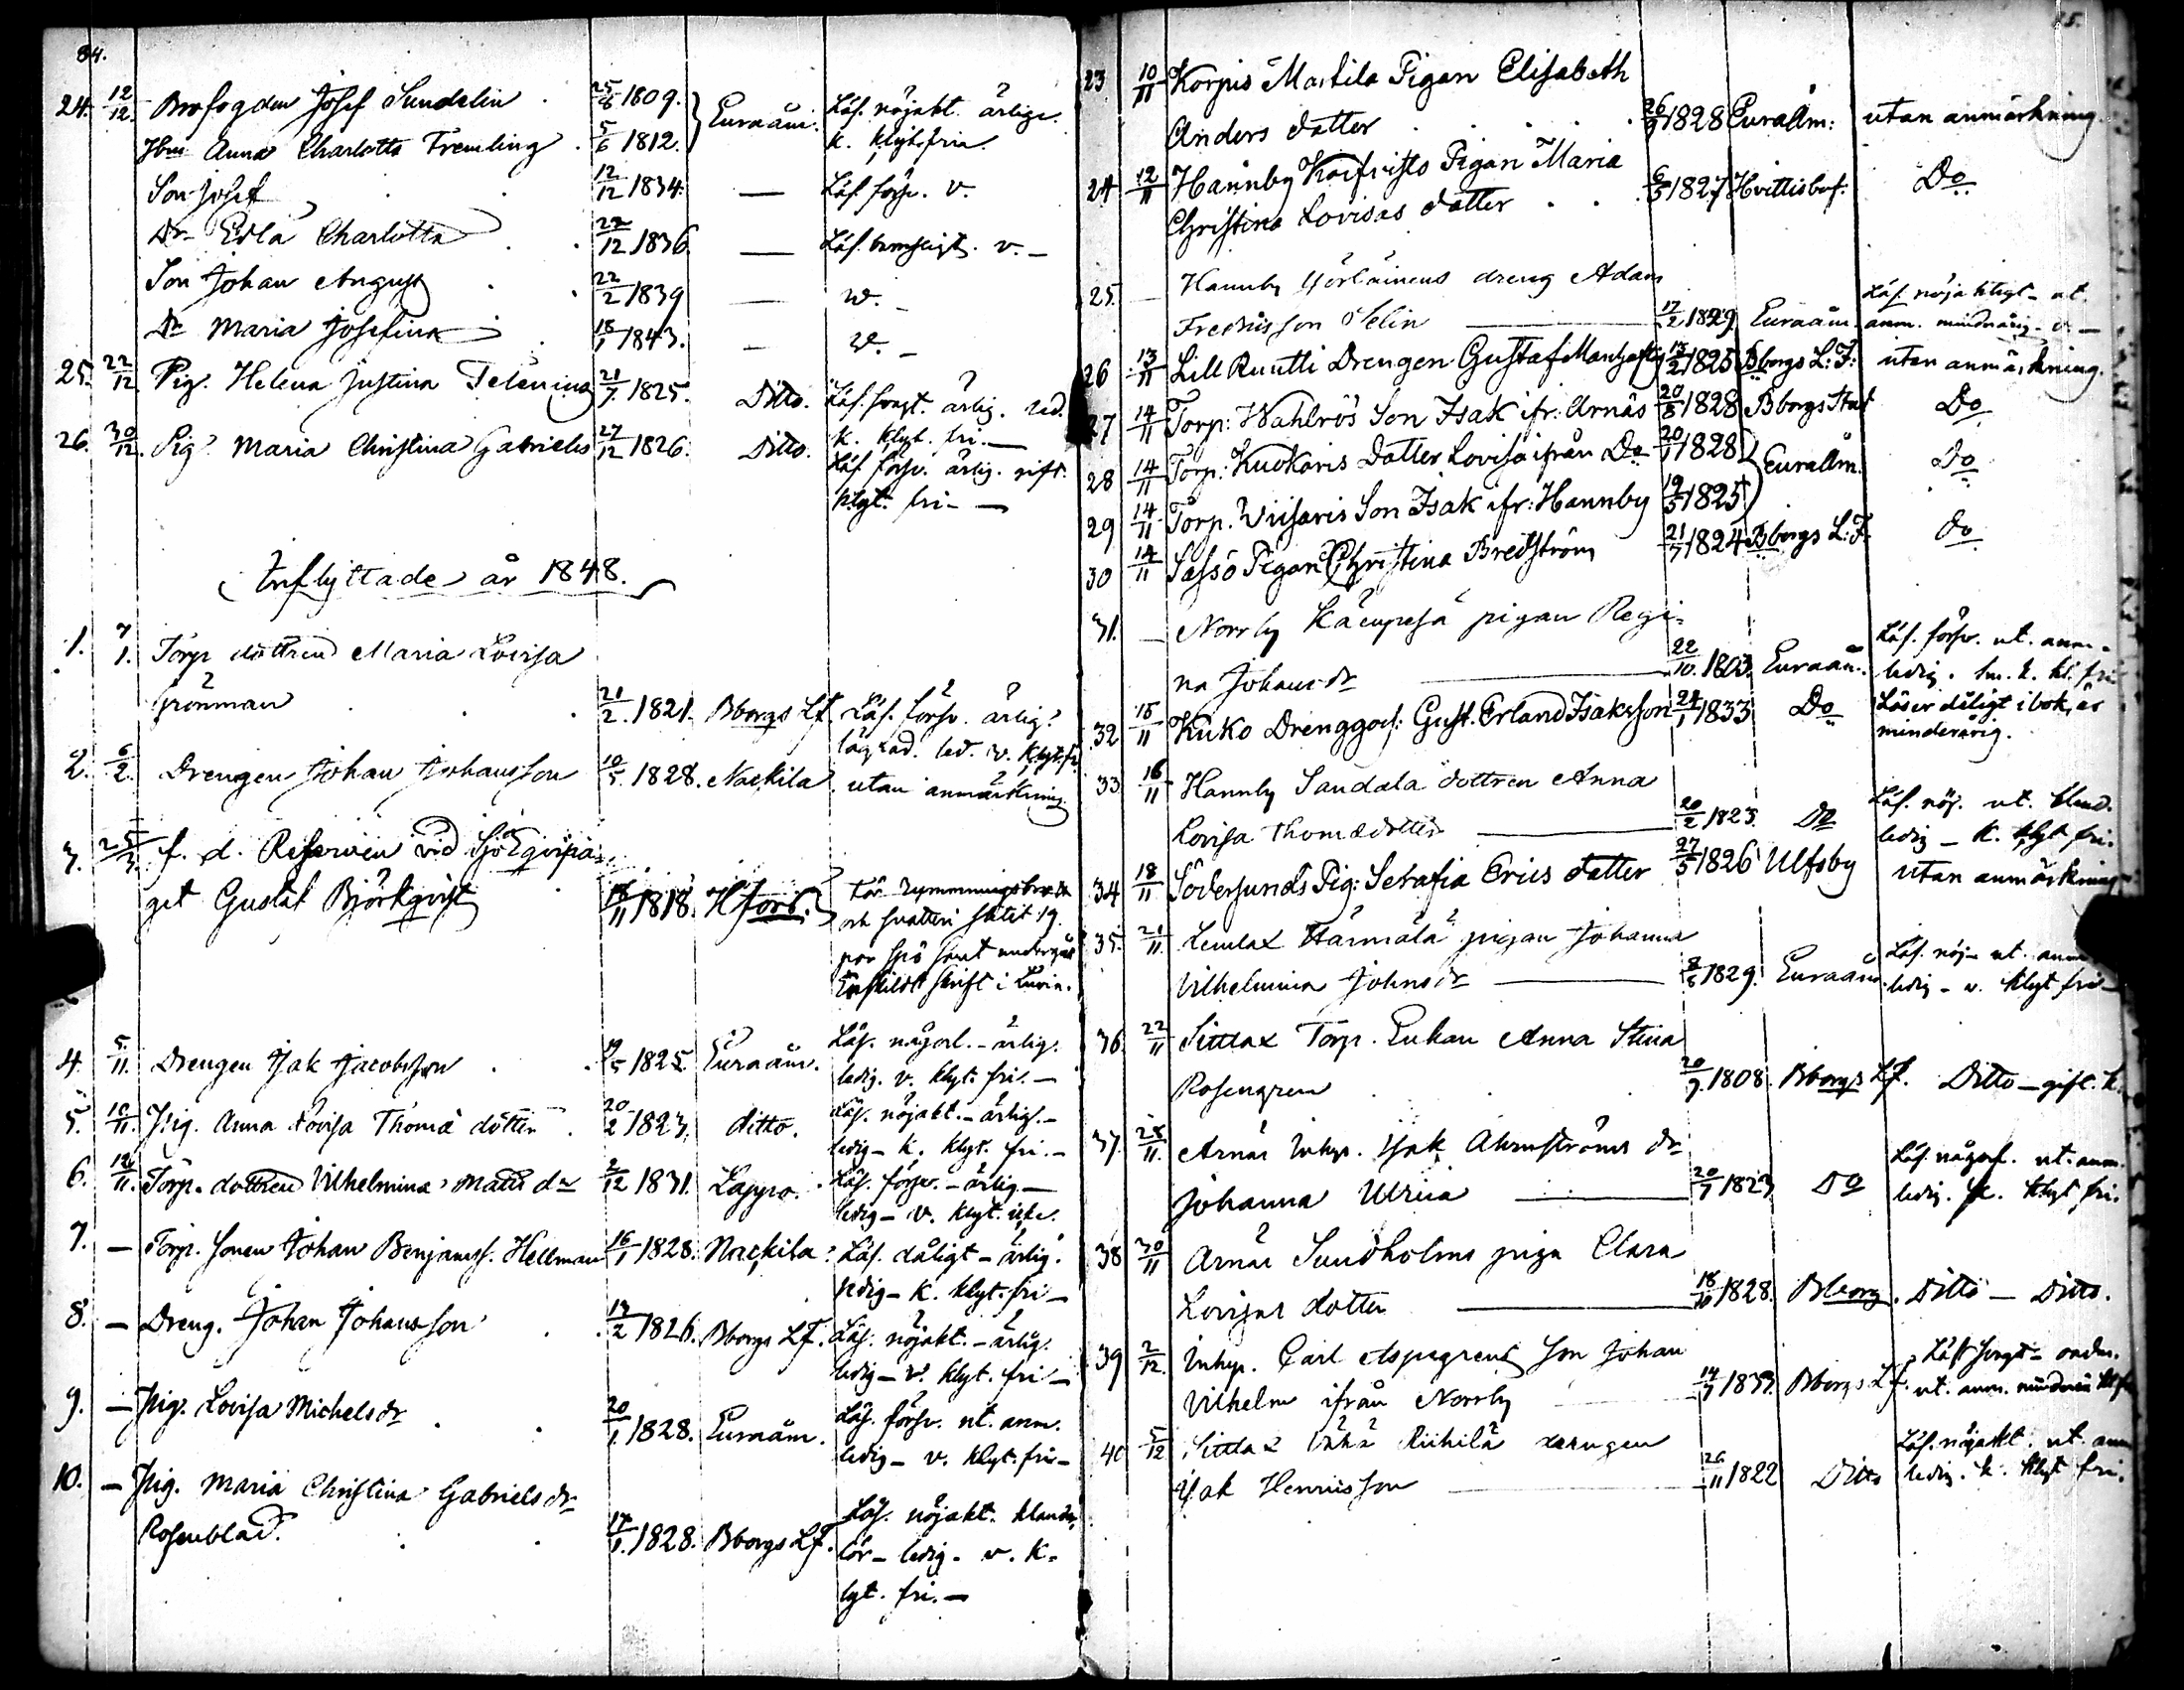 84.
24. 12/12. Brofogden Josef Sundelin . 25/8 1809. } Euraåm. Läs. nöjakt. ärlige.
Hu Anna Charlotta Fremling . 5/6 1812. k. klyts fria.
Son Josef . . 12/12 1834. — Läs. försv. v.
Dr Edla Charlotta . . 22/12 1836. — v. —
Son Johan August . . 22/2 1839 — v. —
Dr Maria Josefina . 18/1 1843. — v. —
25. 22/12 Pig. Helena Justina Telenius 21/7 1825. Ditto. ärlig. led.
k. klyt. fri. —
26. 30/12. Pig. Maria Christina Gabriels 27/12 1826. Ditto. Läs. försv. ärlig. gift.
klyt. fri — —
Inflyttade år 1848.
1. 7/1. Torp dottren Maria Lovisa
Grönman . . 21/2. 1821. Bborgs Lf. Läs. försv. ärlig.
led. v. klyt. fr.
2. 6/2. Drengen Johan Johansson 10/5. 1828. Nackila. utan anmärkning.
3. 25/3. f. d. vid Sjö Eqvipa=
get Gustaf Björkqvist . 18/11 1818. Hfors. För rymmningsbrott
och snatteri slitit 19
par spö samt undergått
Enskildt skrift i Kurin.
4. 5/11. Drengen Isak Jacobsson . . 19/5 1825. Euraåm. Läs. någorl. — ärlig.
ledig. v. klyt. fri. —
5. 10/11. Pig. Anna Lovisa Thomæ dotter . 20/2 1823. ditto. Läs. nöjakt. — ärlig. —
ledig — k. klyt. fri. —
6. 12/11. Torp. dottren Vilhelmina Matts dr 2/12 1831. Lappo. Läs. försv. — ärlig —
ledig — v. klyt. icke.
7. — Torp. sonen Johan Benjamss. Hellman 16/1 1828. Nackila. Läs. dåligt — ärlig.
ledig — k. klyt. fri —
8. — Dreng. Johan Johansson . . 13/2 1826. Bborgs LF. Läs. nöjakt. — ärlig.
ledig — v. klyt. fri —
9. — Pig. Lovisa Michels dr . . 20/1. 1828. Euraåm. Läs. försv. ut. anm.
ledig — v. klyt. fri —
10. — Pig. Maria Christina Gabriels dr
Rosenblad. . . 17/1. 1828. Bborgs LF. Läs. nöjakt. klander
lös — ledig. v. k=
lyt. fri. —
85.
23 10/11 Korpis Martila Pigan Elisabeth
Anders dotter . . . 26/9 1828 Euraåm: utan anmärkning.
24 12/11 Hannby Koifvisto Pigan Maria
Christina Lovisas dotter . . 6/5 1827 Hvittisbof. Do
25. — Hannby Yörläinens dreng Adam
Fredricsson Selin — 17/2 1829 Euraåm. Läs. nöjaktigt — ut.
anm. minderårig. v —
26 13/11 Lill Ruutti Drengen Gustaf 13/2 1825 Bborgs L: F: utan anmärkning.
27 14/11 Torp: Wahlrös Son Isak ifr: Arnäs 20/8 1828 Bborgs Stad Do
28 14/11 Torp: Kuokaris Dotter Lovisa ifrån Do 20/1 1828 } Euraåm. Do
29 14/11 Torp. Viisaris Son Isak ifr: Hannby 19/5 1825
30 14/11 Sassö Pigan Christina Bredström 21/7 1824 Bborgs L: F. do
31. — Norrby Käempesä pigan Regi=
na Johans dr — 22/10. 1803. Euraåm. Läs. försv. ut. anm.
ledig. k. kl. fri
32 15/11 Kuko Drenggos: Gust. Erland Isaksson 24/1 1833 Do Läser dåligt i bok, är
minderårig.
33 16/11 Hannby Sandala dottren Anna
Lovisa Thomædotter — 20/2 1823. Do Läs. nöj. ut. kland.
ledig — k. klyt fri.
34 18/11 Södersunds Pig: Serafia Erics dotter 27/5 1826 Ulfsby utan anmärkning
35. 21/11. Lemlax Härmälä pigan Johanna
Vilhelmina Johns dr — 8/6 1829. Euraåm. Läs. nöj — ut. anm
ledig — v. klyt fri —
36. 22/11 Sittlax Torp. Enkan Anna Stina
Rosengren . 20/9. 1808. Bborgs Lf. Ditto — gift. k.
37. 28/11. Arnäs Inhys. Isak Ahrnströms dr
Johanna Ulrica — 20/7 1823 Do Läs. någorl. ut. anm.
ledig. k. klyt fri.
38 30/11 Arnäs Sundholms piga Clara
Lovisas dotter — 18/10 1828. Bborg. Ditto — Ditto.
39 2/12. Inhys. Carl Aspegrens Son Johan
Vilhelm ifrån Norrby 14/7 1833. Bborgs Lf. Läst
ut. anm. minderår
40 5/12 Sittlax Vähä Riihilä drengen
Isak Henricsson — 26/11 1822 Ditto Läs. nöjaktl. ut. anm
ledig. k. klyt fri.